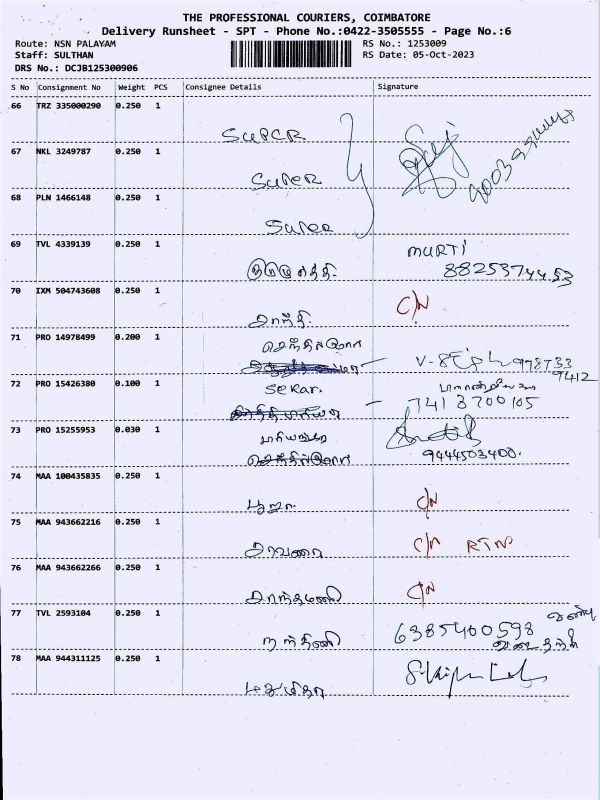 THE PROFESSIONAL COURIERS, COIMBATORE
Delivery Runsheet - SPT - Phone No.:0422-3505555 - Page No.:6
Route: NSN PALAYAM
RS No.: 1253009
Staff: SULTHAN
RS Date: 05-Oct-2023
DRS No.: DCJB125300906
S No Consignment No Weight PCS Consignee Details Signature
66 TRZ 335000290 0.250 1
SUPER
67 NKL 3249787 0.250 1
SUPER
68 PLN 1466148 0.250 1
SUPER
69 TVL 4339139 0.250 1
MURTI
8825374453
70 IXM 504743608 0.250 1
C/N
சாந்தி
71 PRO 14978499 0.200 1
72 PRO 15426380 0.100 1
Sekar.
7418700105
73 PRO 15255953 0.030 1
9444503400.
74 MAA 100435835 0.250 1
C/N
பூஜா
75 MAA 943662216 0.250 1
சரவணா
C/N RTN
76 MAA 943662266 0.250 1
C/N
சாந்தமணி
77 TVL 2593104 0.250 1
நந்தினி
6385400598
78 MAA 944311125 0.250 1
மதுமிதா